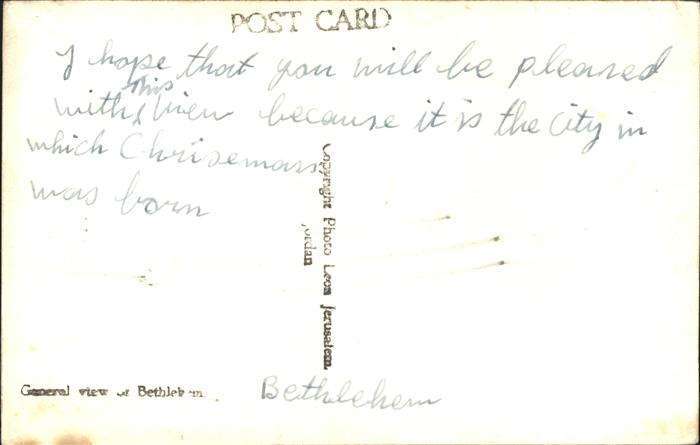 POST CARD
I hope that you will be pleased
with this view because it is the city in
which Chrisemass
was born
Copyright Photo Leon Jerusalem
Jordan
General view of Bethlehem
Bethlehem